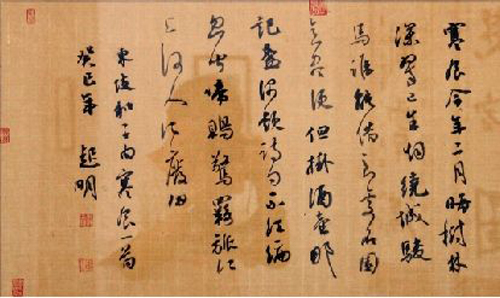 寒食今年二月晦樹林
深翠已生烟繞城駿
馬誰能借到處名園
意盡便但掛酒壺那
記盞偶題詩句不須編
忽聞啼鵙驚羈旅江
上何人治廢田
東坡和子由寒食一首
癸巳年 起明